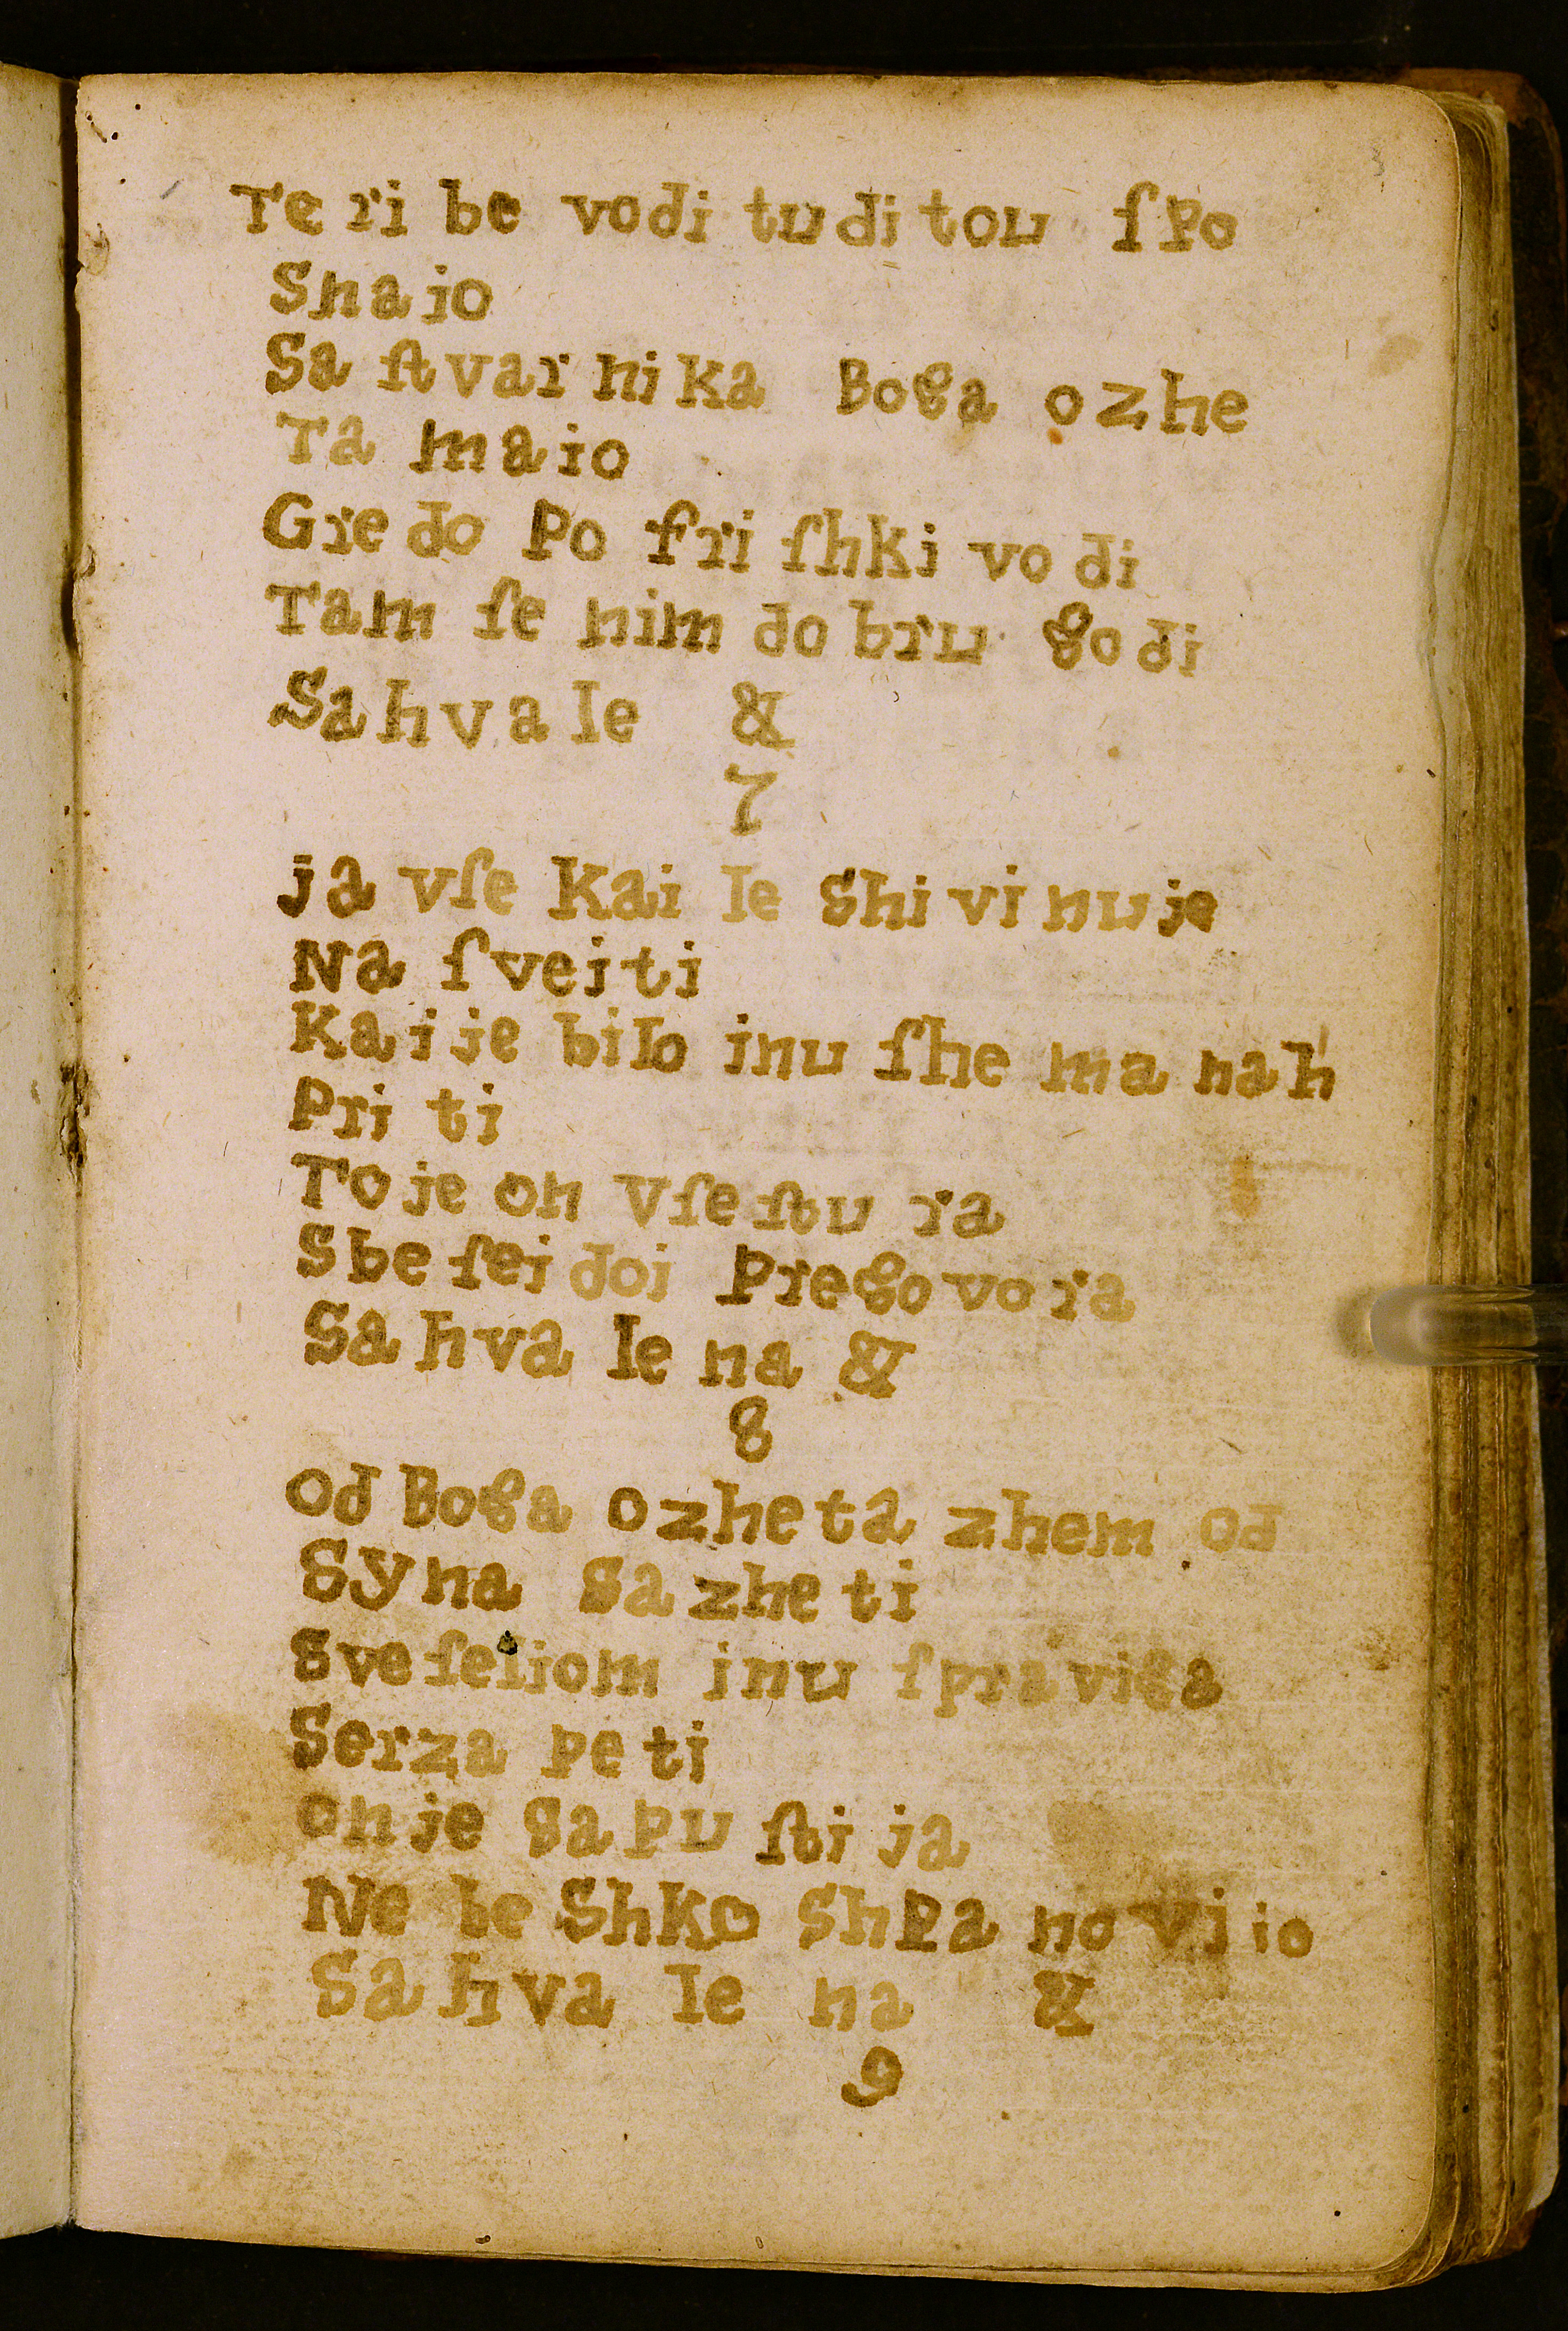 Te ri be vodi tudi tou ſpo
Snajo
Sa ſtvarnika Boga ozhe
Ta majo
Gredo po friſhki vodi
Tam ſe nim dobru godi
Sahvale &
7
ja vſe kai le shivinuje
Na ſvejti
Kaj je bilo inu ſhe ma nah
Priti
To je on vſe ſtura
Sbeſei doi pregovora
Sahvalena &
8
Od Boga ozheta zhem od
Syna sazheti
Sveſeliom inu ſpraviga
Serza peti
on je sapuſtija
Nebeshko shpanovijo
Sahvalena &
9